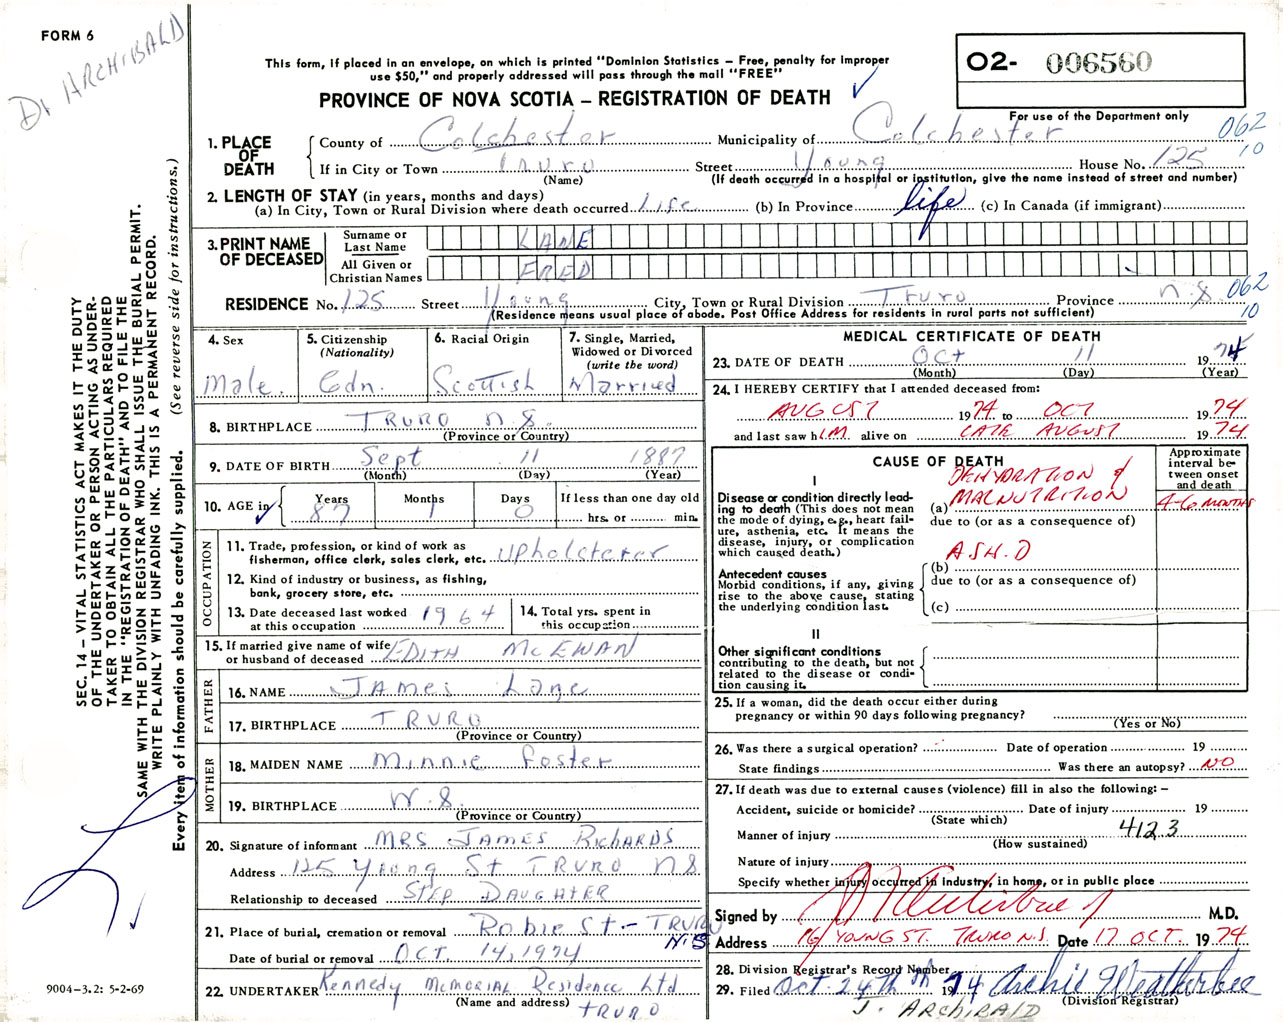 FORM 6
Dr ARCHIBALD
This form, if placed in an envelope, on which is printed "Dominion Statistics – Free, penalty for improper
use $50," and properly addressed will pass through the mail "FREE"
PROVINCE OF NOVA SCOTIA – REGISTRATION OF DEATH
O2- 006560
For use of the Department only
062
10
1. PLACE OF DEATH
County of Colchester Municipality of Colchester
If in City or Town Truro Street Young House No. 125
(Name) (If death occurred in a hospital or institution, give the name instead of street and number)
2. LENGTH OF STAY (in years, months and days)
(a) In City, Town or Rural Division where death occurred Life (b) In Province life (c) In Canada (if immigrant)
3. PRINT NAME OF DECEASED
Surname or Last Name LANE
All Given or Christian Names FRED
RESIDENCE No. 125 Street Young City, Town or Rural Division Truro Province N.S. 062
(Residence means usual place of abode. Post Office Address for residents in rural parts not sufficient) 10
SEC. 14 – VITAL STATISTICS ACT MAKES IT THE DUTY
OF THE UNDERTAKER OR PERSON ACTING AS UNDER-
TAKER TO OBTAIN ALL THE PARTICULARS REQUIRED
IN THE "REGISTRATION OF DEATH" AND TO FILE THE
SAME WITH THE DIVISION REGISTRAR WHO SHALL ISSUE THE BURIAL PERMIT.
WRITE PLAINLY WITH UNFADING INK. THIS IS A PERMANENT RECORD.
Every item of information should be carefully supplied. (See reverse side for instructions.)
4. Sex
Male.
5. Citizenship
(Nationality)
Cdn.
6. Racial Origin
Scottish
7. Single, Married,
Widowed or Divorced
(write the word)
Married
8. BIRTHPLACE TRURO N.S.
(Province or Country)
9. DATE OF BIRTH Sept 11 1887
(Month) (Day) (Year)
10. AGE in
Years Months Days If less than one day old
87 1 0 hrs. or min.
OCCUPATION
11. Trade, profession, or kind of work as
fisherman, office clerk, sales clerk, etc. Upholsterer
12. Kind of industry or business, as fishing,
bank, grocery store, etc.
13. Date deceased last worked
at this occupation 1964
14. Total yrs. spent in
this occupation
15. If married give name of wife
or husband of deceased EDITH McEWAN
FATHER
16. NAME JAMES Lane
17. BIRTHPLACE TRURO
(Province or Country)
MOTHER
18. MAIDEN NAME Minnie Foster
19. BIRTHPLACE N.S.
(Province or Country)
20. Signature of informant MRS JAMES RICHARDS
Address 125 Young St TRURO N.S.
Relationship to deceased STEP DAUGHTER
21. Place of burial, cremation or removal Robie St – TRURO
N.S
Date of burial or removal OCT. 14, 1974
22. UNDERTAKER Kennedy MEMORIAL Residence Ltd
(Name and address) TRURO
9004–3.2: 5-2-69
MEDICAL CERTIFICATE OF DEATH
23. DATE OF DEATH Oct 11 1974
(Month) (Day) (Year)
24. I HEREBY CERTIFY that I attended deceased from:
AUGUST 1974 to OCT 1974
and last saw hIM alive on LATE AUGUST 1974
CAUSE OF DEATH
Approximate
interval be-
tween onset
and death
I
Disease or condition directly lead-
ing to death (This does not mean
the mode of dying, e.g., heart fail-
ure, asthenia, etc. It means the
disease, injury, or complication
which caused death.)
DEHYDRATION &
(a) MALNUTRITION 4-6 MONTHS
due to (or as a consequence of)
Antecedent causes
Morbid conditions, if any, giving
rise to the above cause, stating
the underlying condition last.
A.S.H.D
(b)
due to (or as a consequence of)
(c)
II
Other significant conditions
contributing to the death, but not
related to the disease or condi-
tion causing it.
25. If a woman, did the death occur either during
pregnancy or within 90 days following pregnancy?
(Yes or No)
26. Was there a surgical operation? Date of operation 19
State findings Was there an autopsy? NO
27. If death was due to external causes (violence) fill in also the following: –
Accident, suicide or homicide? Date of injury 19
(State which)
Manner of injury 4123
(How sustained)
Nature of injury
Specify whether injury occurred in industry, in home, or in public place
Signed by M.D.
Address 16 YOUNG ST. TRURO N.S. Date 17 OCT. 1974
28. Division Registrar's Record Number
29. Filed Oct. 24th 1974 Archie Weatherbee
(Division Registrar)
J. ARCHIBALD